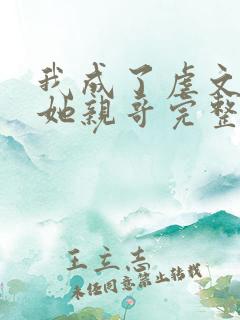 我成了虐文
她親哥完整
王立志
未经同意禁止转载